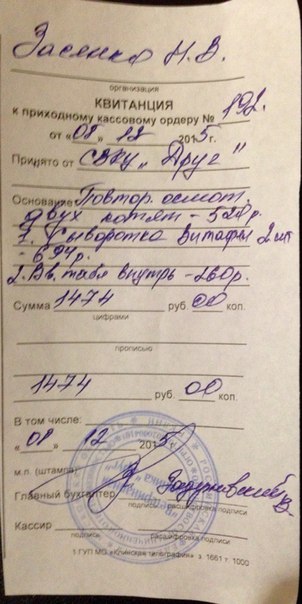 Засенко Н.В.
организация
КВИТАНЦИЯ
к приходному кассовому ордеру № 192.
от «08» 12 2015 г.
Принято от СЖУ „Друг"
Основание Повтор. осмот.
двух котят - 520 р.
1. Сыворотка Витафел 2 шт
- 694 р.
2. Вв. табл внутрь - 260 р.
Сумма 1474 руб. 00 коп.
цифрами
прописью
1474 руб. 00 коп.
В том числе:
«08» 12 2015
м.п. (штампа)
Главный бухгалтер
подпись расшифровка подписи
Кассир
подпись расшифровка подписи
1.ГУП МО «Клинская типография» з 1661 т. 1000